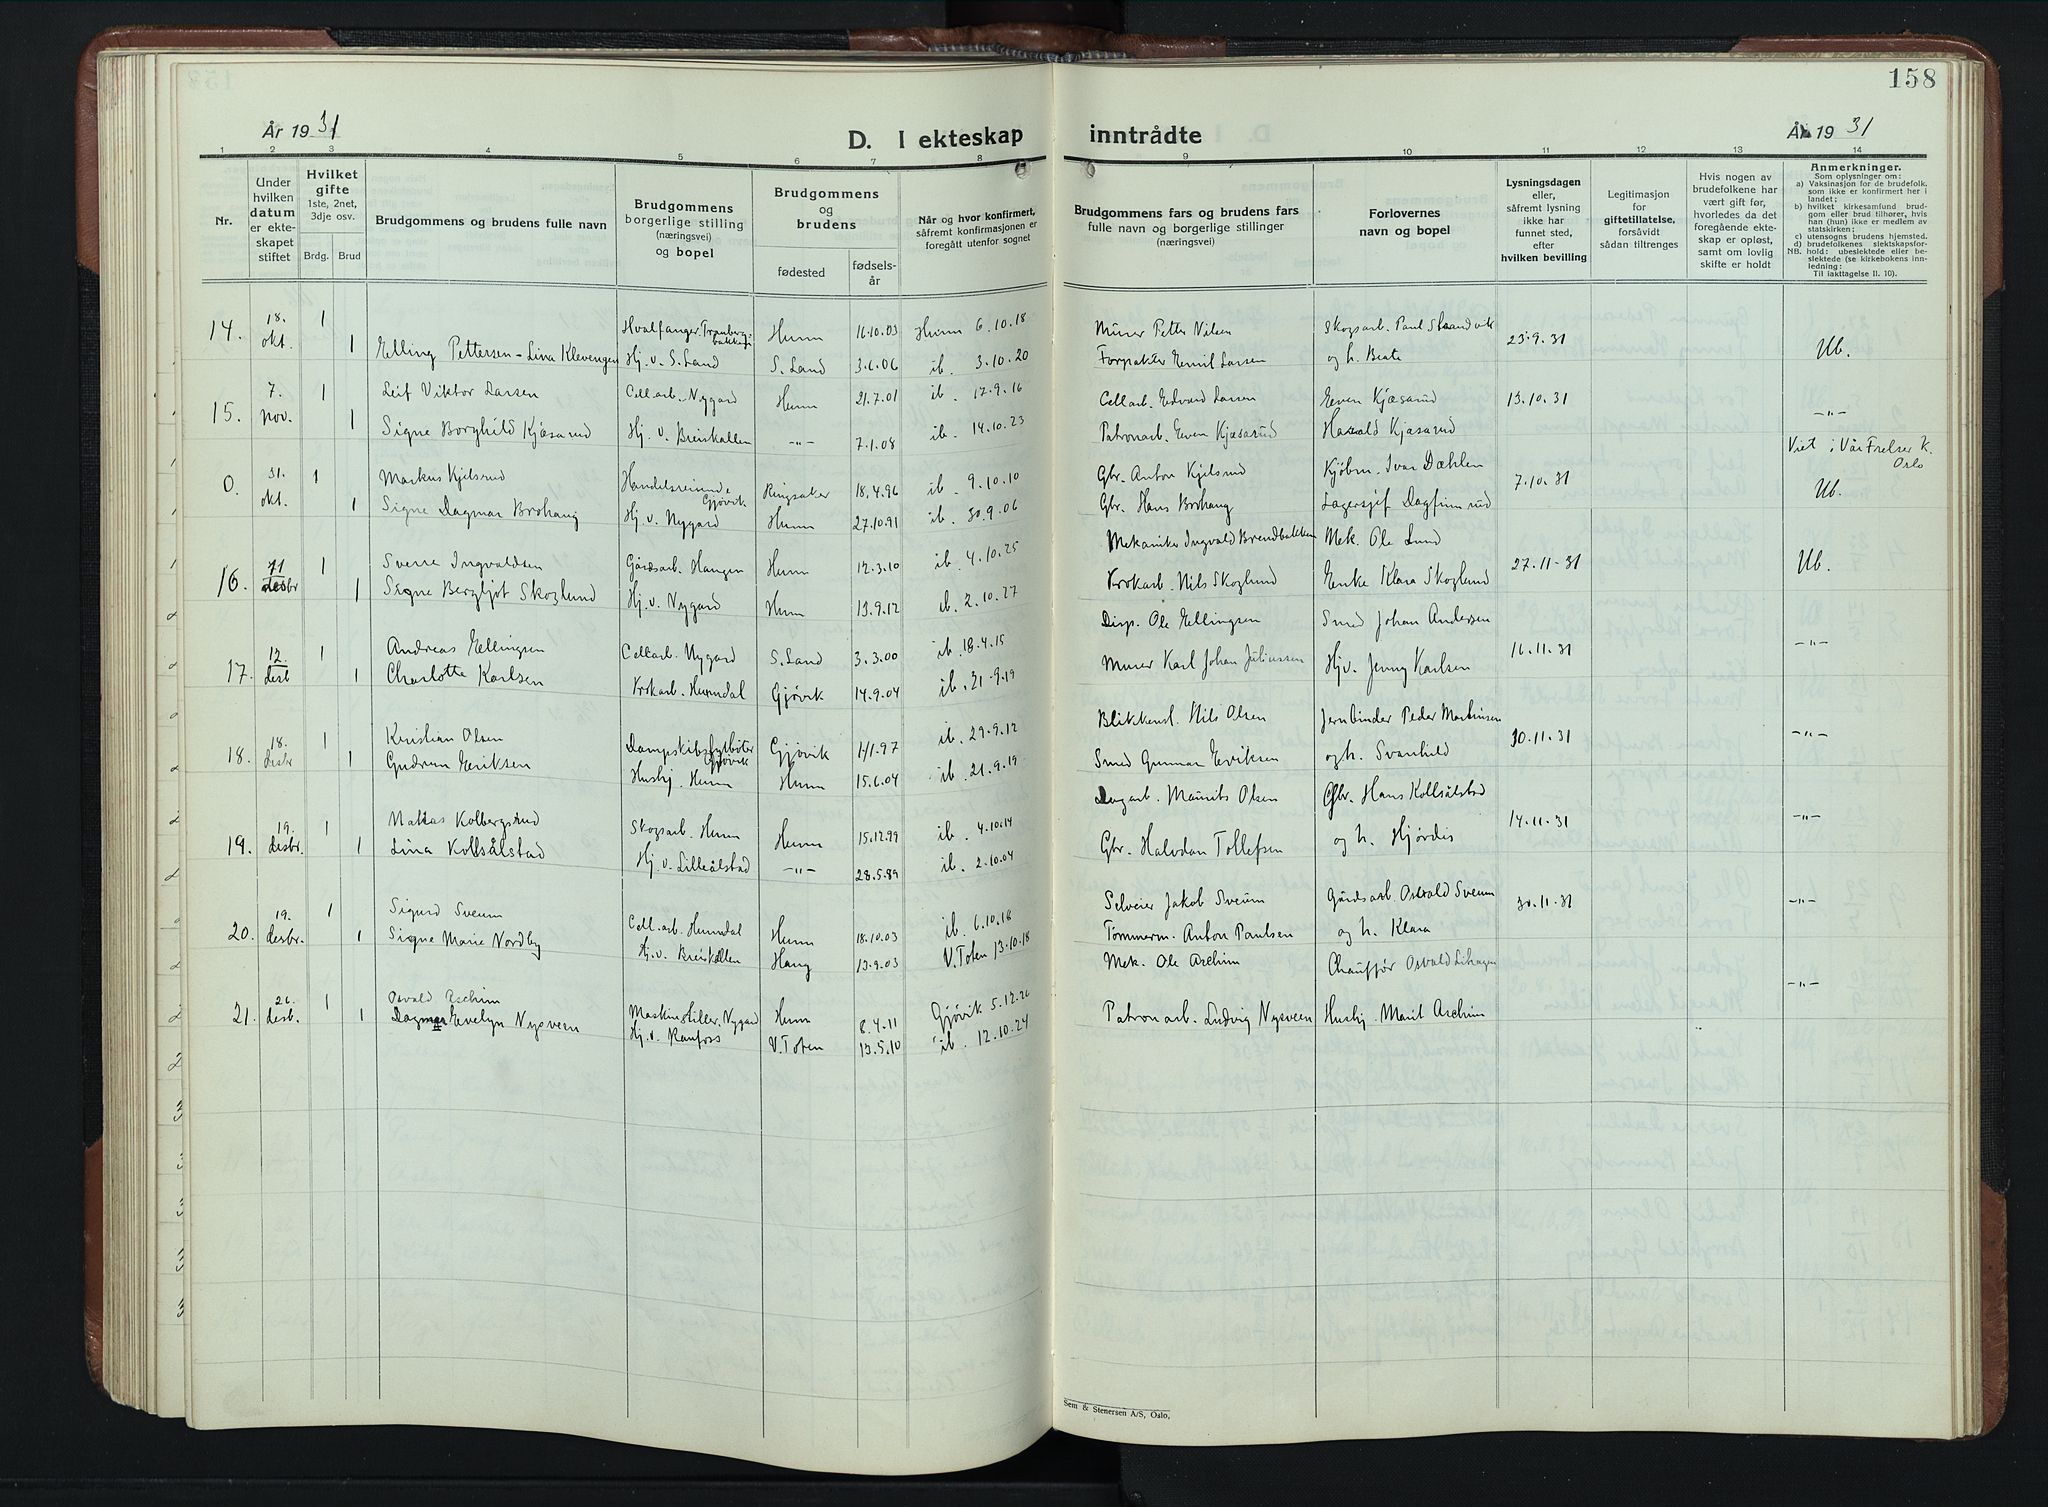 158
År 1931
D. I ekteskap inntrådte
År 1931
1 2 3 4 5 6 7 8 9 10 11 12 13 14
Nr.
Under hvilken datum er ekteskapet stiftet
Hvilket gifte 1ste, 2net, 3dje osv.
Brdg. Brud
Brudgommens og brudens fulle navn
Brudgommens borgerlige stilling (næringsvei) og bopel
Brudgommens og brudens
fødested
fødselsår
Når og hvor konfirmert, såfremt konfirmasjonen er foregått utenfor sognet
Brudgommens fars og brudens fars fulle navn og borgerlige stillinger (næringsvei)
Forlovernes navn og bopel
Lysningsdagen eller, såfremt lysning ikke har funnet sted, efter hvilken bevilling
Legitimasjon for giftetillatelse, forsåvidt sådan tiltrenges
Hvis nogen av brudefolkene har vært gift før, hvorledes da det foregående ekteskap er opløst, samt om lovlig skifte er holdt
Anmerkninger.
Som oplysninger om:
a) Vaksinasjon for de brudefolk. som ikke er konfirmert her i landet;
b) hvilket kirkesamfund brudgom eller brud tilhører, hvis han (hun) ikke er medlem av statskirken;
c) utensogns brudens hjemsted.
d) brudefolkenes slektskapsforhold: ubeslektede eller beslektede (se kirkebokens innledning:
NB. Til iakttagelse II. 10).
14. 18. okt. 1 Hvalfanger Tranberg-bakken Hunn 16.10.03 Hunn 6.10.18 Murer Petter Nilsen Skogsarb. Paul Strandvik 23.9.31 Ub.
1 Elling Pettersen - Lina Klevengen Hj. v. S. Land S. Land 3.6.06 ib. 3.10.20 Forpakter Emil Larsen og h. Beate
15. 7. nov. 1 Leif Viktor Larsen Cell.arb. Nygard Hunn 21.7.01 ib. 17.9.16 Cellarb. Edvard Larsen Even Kjæsarud 13.10.31 -"-
1 Signe Borghild Kjæsarud Hj. v. Breiskallen -"- 7.1.08 ib. 14.10.23 Patronarb. Even Kjæsarud Harald Kjæsarud
Viet i Vår Frelser K. Oslo
0. 31. okt. 1 Markus Kjelsrud Handelsreisende Gjøvik Ringsaker 18.4.96 ib. 9.10.10 Gbr. Anton Kjelsrud Kjøbm. Ivar Dæhlen 7.10.31 Ub.
1 Signe Dagmar Brohaug Hj. v. Nygard Hunn 27.10.91 ib. 30.9.06 Gbr. Hans Brohaug Lagersjef Dagfinn
16. desbr 1 Sverre Ingvaldsen Gårdsarb. Haugen Hunn 12.3.10 ib. 4.10.25 Mekaniker Ingvald Brendbakken Mek. Ole Lund 27.11.31 Ub.
1 Signe Bergljot Skoglund Hj. v. Nygard Hunn 13.9.12 ib. 2.10.27 Krokarb. Nils Skoglund Enke Klara Skoglund
17. 12. desb 1 Andreas Ellingsen Cellarb. Nygard S. Land 3.3.00 ib. 18.4.15 Disp. Ole Ellingsen Smed Johan Andersen 16.11.31 -"-
1 Charlotte Karlsen Krokarb. Hunndal Gjøvik 14.9.04 ib. 21.9.19 Murer Karl Johan Juliussen Hjv. Jenny Karlsen
18. 18. desbr 1 Kristian Olsen Dampskibsfyrbøter Gjøvik Gjøvik 1/1.97 ib. 29.9.12 Blikkensl. Nils Olsen Jernbinder Peder Martinsen 30.11.31 -"-
1 Gudrun Eriksen Hushj. Hunn Hunn 15.6.04 ib. 21.9.19 Smed Gunnar Eriksen og h. Svanhild
19. 19. desbr. 1 Mattas Kolbergsrud Skogsarb. Hunn Hunn 15.12.99 ib. 4.10.14 Dagarb. Maurits Olsen Gbr. Hans Kollsålstad 14.11.31 -"-
1 Lina Kollsålstad Hj. v. Lilleålstad -"- 28.5.89 ib. 2.10.04 Gbr. Halvdan Tollefsen og h. Hjørdis
20. 19. desbr. 1 Sigurd Sveum Cell.arb. Hunndal Hunn 18.10.03 ib. 6.10.18 Selveier Jakob Sveum Gårdsarb. Osvald Sveum 30.11.31 -"-
1 Signe Marie Nordby Hj. v. Breiskallen Haug 13.9.03 V. Toten 13.10.18 Tømmerm. Anton Paulsen og h. Klara
21. 26. desb. 1 Osvald Aschim Maskinstiller, Nygard Hunn 8.4.11 Gjøvik 5.12.26 Mek. Ole Aschim Chauffør Osvald -"-
1 Dagmar Evelyn Nysveen Hj. v. Raufoss V. Toten 13.5.10 ib. 12.10.24 Patronarb. Ludvig Nysveen Hushj. Marit Aschim
Sem & Stenersen A/S, Oslo.